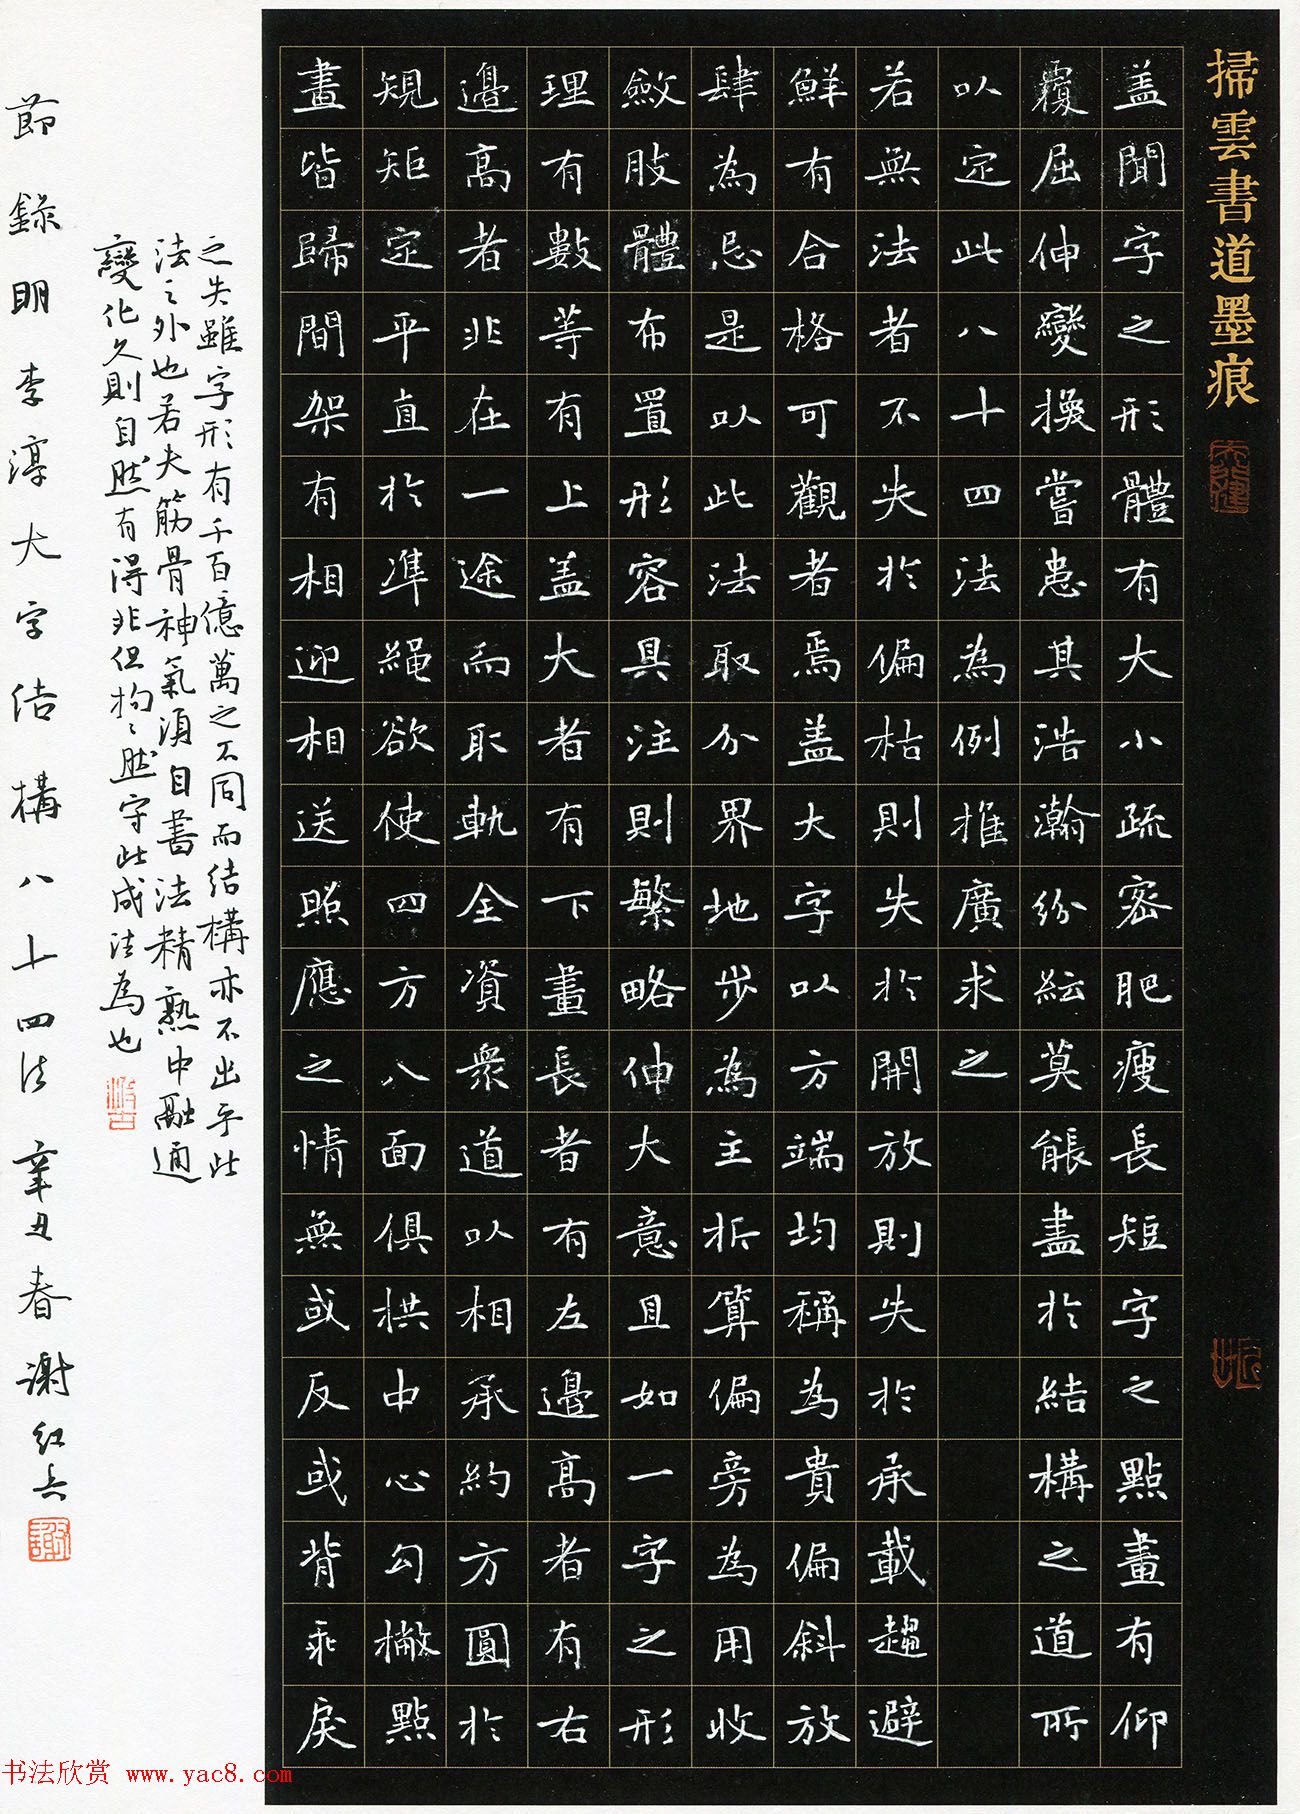 掃雲書道墨痕
盖聞字之形體有大小疏密肥瘦長短字之點畫有仰
覆屈伸變換嘗患其浩瀚紛紜莫能盡於結構之道所
以定此八十四法為例推廣求之
若無法者不失於偏枯則失於開放則失於承載趨避
鮮有合格可觀者焉盖大字以方端均稱為貴偏斜放
肆為忌是以此法取分界地步為主折算偏旁為用收
斂肢體布置形容具注則繁略伸大意且如一字之形
理有數等有上盖大者有下畫長者有左邊高者有右
邊高者非在一途而取軌全資衆道以相承約方圓於
規矩定平直於準繩欲使四方八面俱拱中心勾撇點
畫皆歸間架有相迎相送照應之情無或反或背乖戾
之失雖字形有千百億萬之不同而结構亦不出乎此
法之外也若夫筋骨神氣須自書法精熟中融通
變化久則自然有得非但拘〻然守此成法為也
節錄明李淳大字结構八十四法 辛丑春 谢红兵
书法欣赏 www.yac8.com